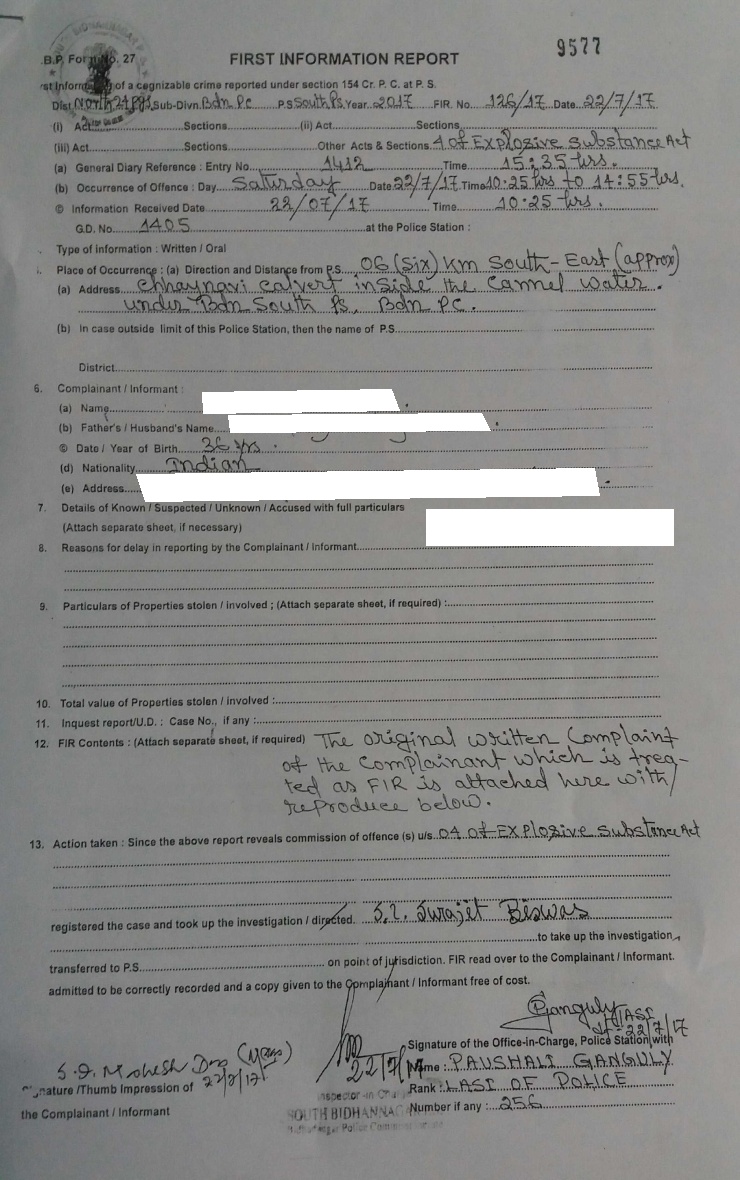 9577
B.P. Form No. 27
FIRST INFORMATION REPORT
st Information of a cognizable crime reported under section 154 Cr. P. C. at P. S.
Dist North 24 Pgs Sub-Divn. Bdn P.C P.S South P.S Year 2017 FIR. No. 126/17 Date 22/7/17
(i) Act Sections (ii) Act Sections
(iii) Act Sections Other Acts & Sections 4 of Explosive Substance Act
(a) General Diary Reference : Entry No. 1412 Time 15:35 hrs.
(b) Occurrence of Offence : Day Saturday Date 22/7/17 Time 10:25 hrs to 14:55 hrs.
© Information Received Date 22/07/17 Time 10:25 hrs.
G.D. No. 1405 at the Police Station :
Type of information : Written / Oral
Place of Occurrence : (a) Direction and Distance from P.S. 06 (Six) Km South-East (approx)
(a) Address Chhaynavi calvert inside the cannel water.
under Bdn South Ps, Bdn PC.
(b) In case outside limit of this Police Station, then the name of P.S.
District
6. Complainant / Informant :
(a) Name
(b) Father's / Husband's Name
© Date / Year of Birth 36 yrs.
(d) Nationality Indian
(e) Address
7. Details of Known / Suspected / Unknown / Accused with full particulars
(Attach separate sheet, if necessary)
8. Reasons for delay in reporting by the Complainant / informant
9. Particulars of Properties stolen / involved ; (Attach separate sheet, if required) :
10. Total value of Properties stolen / involved :
11. Inquest report/U.D. : Case No., if any :
12. FIR Contents : (Attach separate sheet, if required) The original written Complaint
of the Complainant which is trea-
ted as FIR is attached here with/
reproduce below.
13. Action taken : Since the above report reveals commission of offence (s) u/s 04 of Explosive Substance Act
registered the case and took up the investigation / directed. S.I. Surajit Biswas
to take up the investigation
transferred to P.S. on point of jurisdiction. FIR read over to the Complainant / Informant.
admitted to be correctly recorded and a copy given to the Complainant / Informant free of cost.
Ganguly LASI
22/7/17
Signature of the Office-in-Charge, Police Station with
S.I. Mahesh Das
22/7/17
22/7/17
Name : PAUSHALI GANGULY
Signature /Thumb Impression of
the Complainant / Informant
Rank : LASI OF POLICE
Inspector-in-Charge
Number if any : 256
SOUTH BIDHANNAG